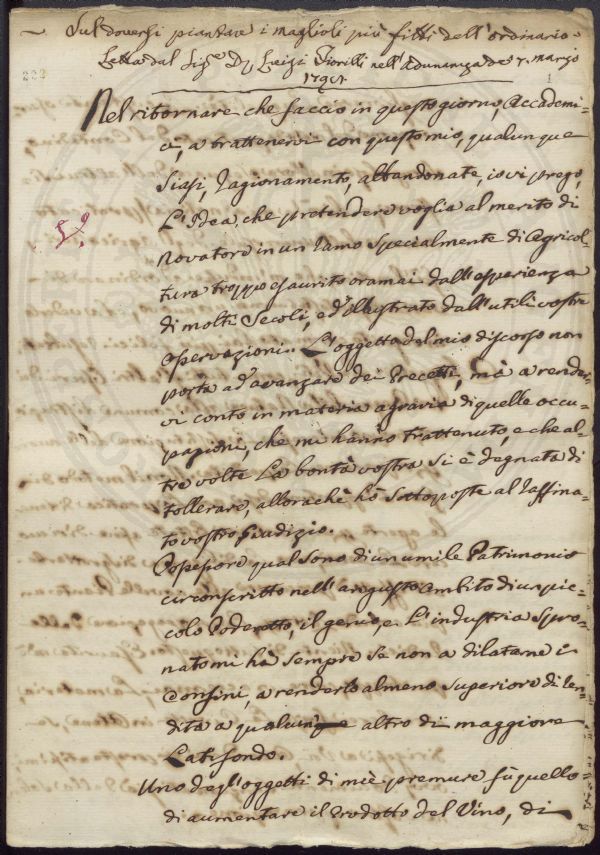 ~ Sul doversi piantare i maglioli più fitti dell'ordinario.
Letta dal Sig.e D. Luigi Fiorilli nell'Adunanza de 7. marzo
1792.
Nel ritornare che faccio in questo giorno, Accademi-
ci, a trattenervi con questo mio, qualunque
siasi, ragionamento, abbandonate, io vi prego,
L'Idea, che pretendere voglia al merito di
novatore in un ramo specialmente di Agricol-
tura troppo esaurito oramai dall'esperienza
di molti secoli, ed illustrato dall'utili vostre
osservazioni. L'oggetto del mio discorso non
porta ad avanzare dei Precetti, mà a render-
vi conto in materia agraria di quelle occu-
pazioni, che mi hanno trattenuto, e che al-
tre volte La bontà vostra si è degnata di
tollerare, allorachè hò sottoposte al raffina-
to vostro Giudizio.
Possessore qual sono di un umile Patrimonio
circonscritto nell'angusto ambito di un pic-
colo Poderetto, il genio, e L'industria spro-
nato mi hà sempre se non a dilatarne i
Confini, a renderlo almeno superiore di ren-
dita a qualunque altro di maggiore
Latifondo.
Uno degl'oggetti di mie premure fù quello
di aumentare il Prodotto del Vino, di